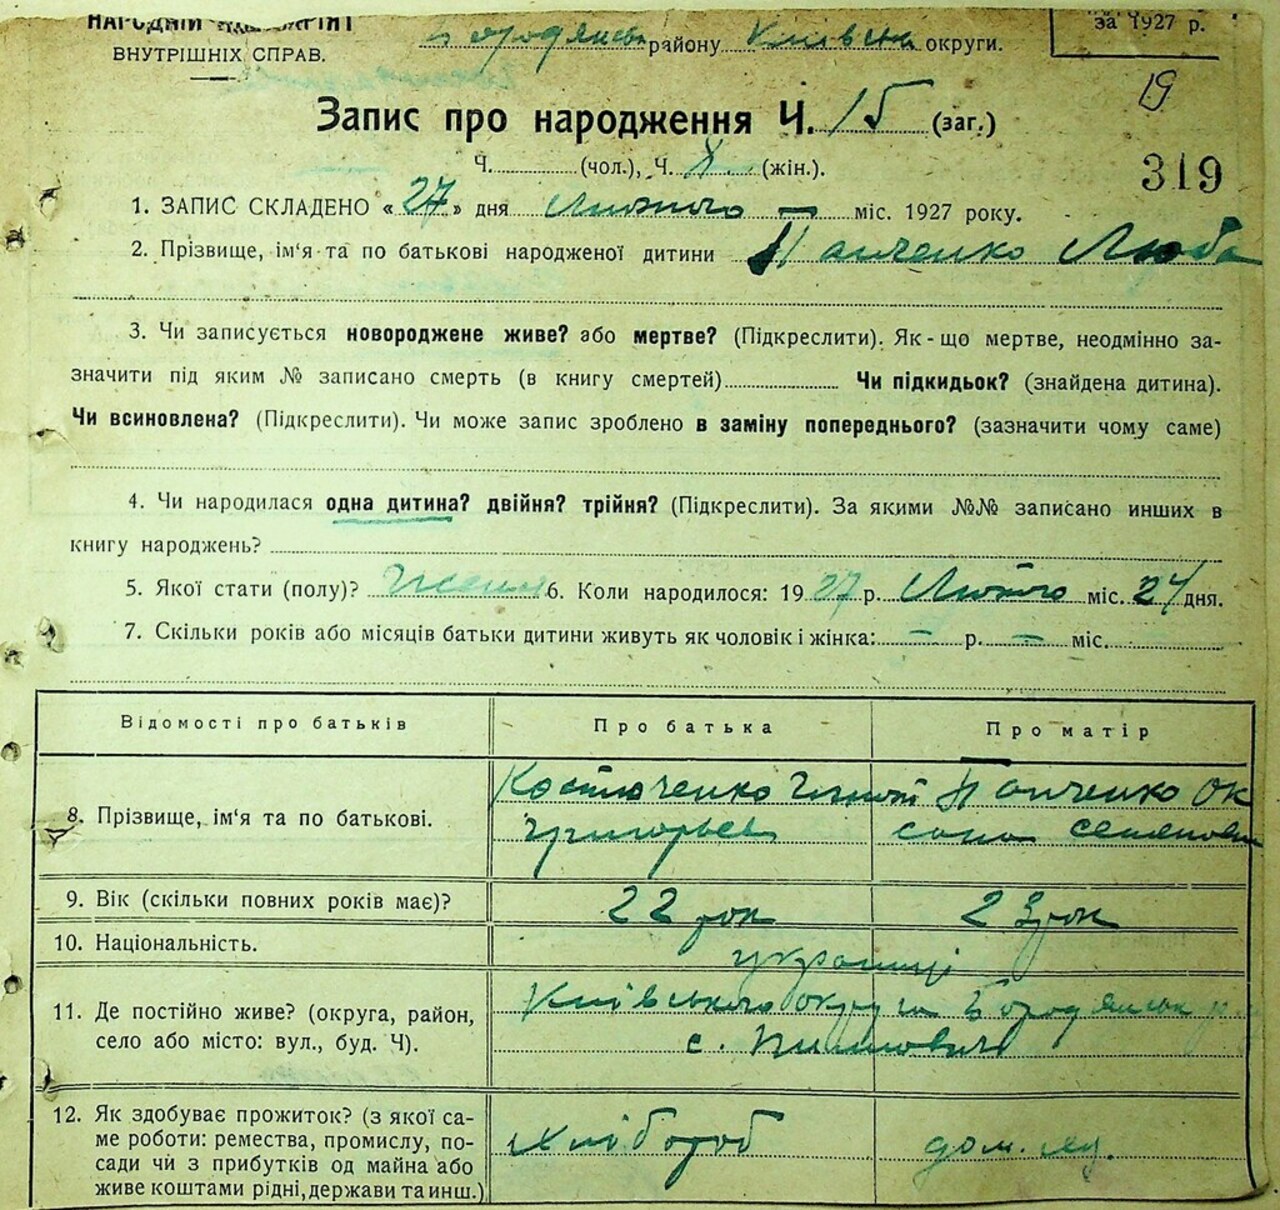 НАРОДНІЙ КОМІСАРІЯТ
ВНУТРІШНІХ СПРАВ.
Бородянськ району Київськ округи.
за 1927 р.
19
Запис про народження Ч. 15 (заг.)
Ч. (чол.), Ч. 8 (жін.).
319
1. ЗАПИС СКЛАДЕНО «27» дня Лютого — міс. 1927 року.
2. Прізвище, ім'я та по батькові народженої дитини Панченко Люба
3. Чи записується новороджене живе? або мертве? (Підкреслити). Як-що мертве, неодмінно за-
значити під яким № записано смерть (в книгу смертей) Чи підкидьок? (знайдена дитина).
Чи всиновлена? (Підкреслити). Чи може запис зроблено в заміну попереднього? (зазначити чому саме)
4. Чи народилася одна дитина? двійня? трійня? (Підкреслити). За якими №№ записано инших в
книгу народжень?
5. Якої стати (полу)? 6. Коли народилося: 1927 р. Лютого міс. 24 дня.
7. Скільки років або місяців батьки дитини живуть як чоловік і жінка: — р. — міс.
Відомості про батьків Про батька Про матір
8. Прізвище, ім'я та по батькові.
Костюченко Панченко Ок
Григорьев сана Семенов
9. Вік (скільки повних років має)? 22 рок 23 рок
10. Національність. українці
11. Де постійно живе? (округа, район,
село або місто: вул., буд. Ч).
Київського округа Бородянськ р.
с. Пилиповичі
12. Як здобуває прожиток? (з якої са-
ме роботи: ремества, промислу, по-
сади чи з прибутків од майна або
живе коштами рідні, держави та инш.)
Хлібороб дом. хаз.